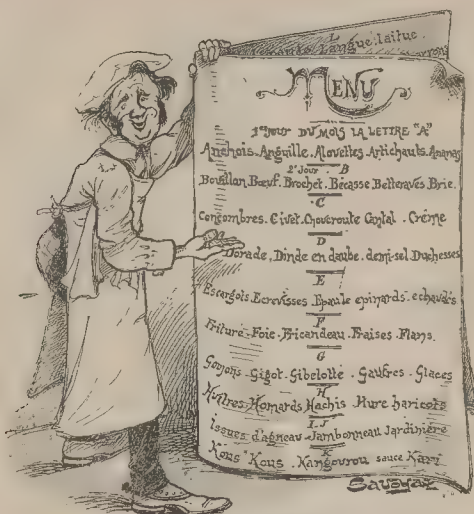 L
Langue. laitue.
MENU
1er JOUR DU MOIS LA LETTRE "A"
Anchois. Anguille. Alouettes. Artichauts. Ananas
2e Jour. B
Bouillon. Bœuf. Brochet. Bécasse Betteraves. Brie.
C
Concombres. Civet. Choucroute Cantal. Crême
D
Dorade. Dinde en daube. demi-sel Duchesses
E
Escargots. Ecrevisses. Epaule epinards. echaudés
F
Friture. Foie. Fricandeau. Fraises. Flans.
G
Goujons. Gigot. Gibelotte. Gaufres. Glaces
H
Huîtres. Homards. Hachis. Hure haricots
I.J
Issues d'agneau. Jambonneau Jardinière
K
Kous Kous. Kangourou sauce Kari